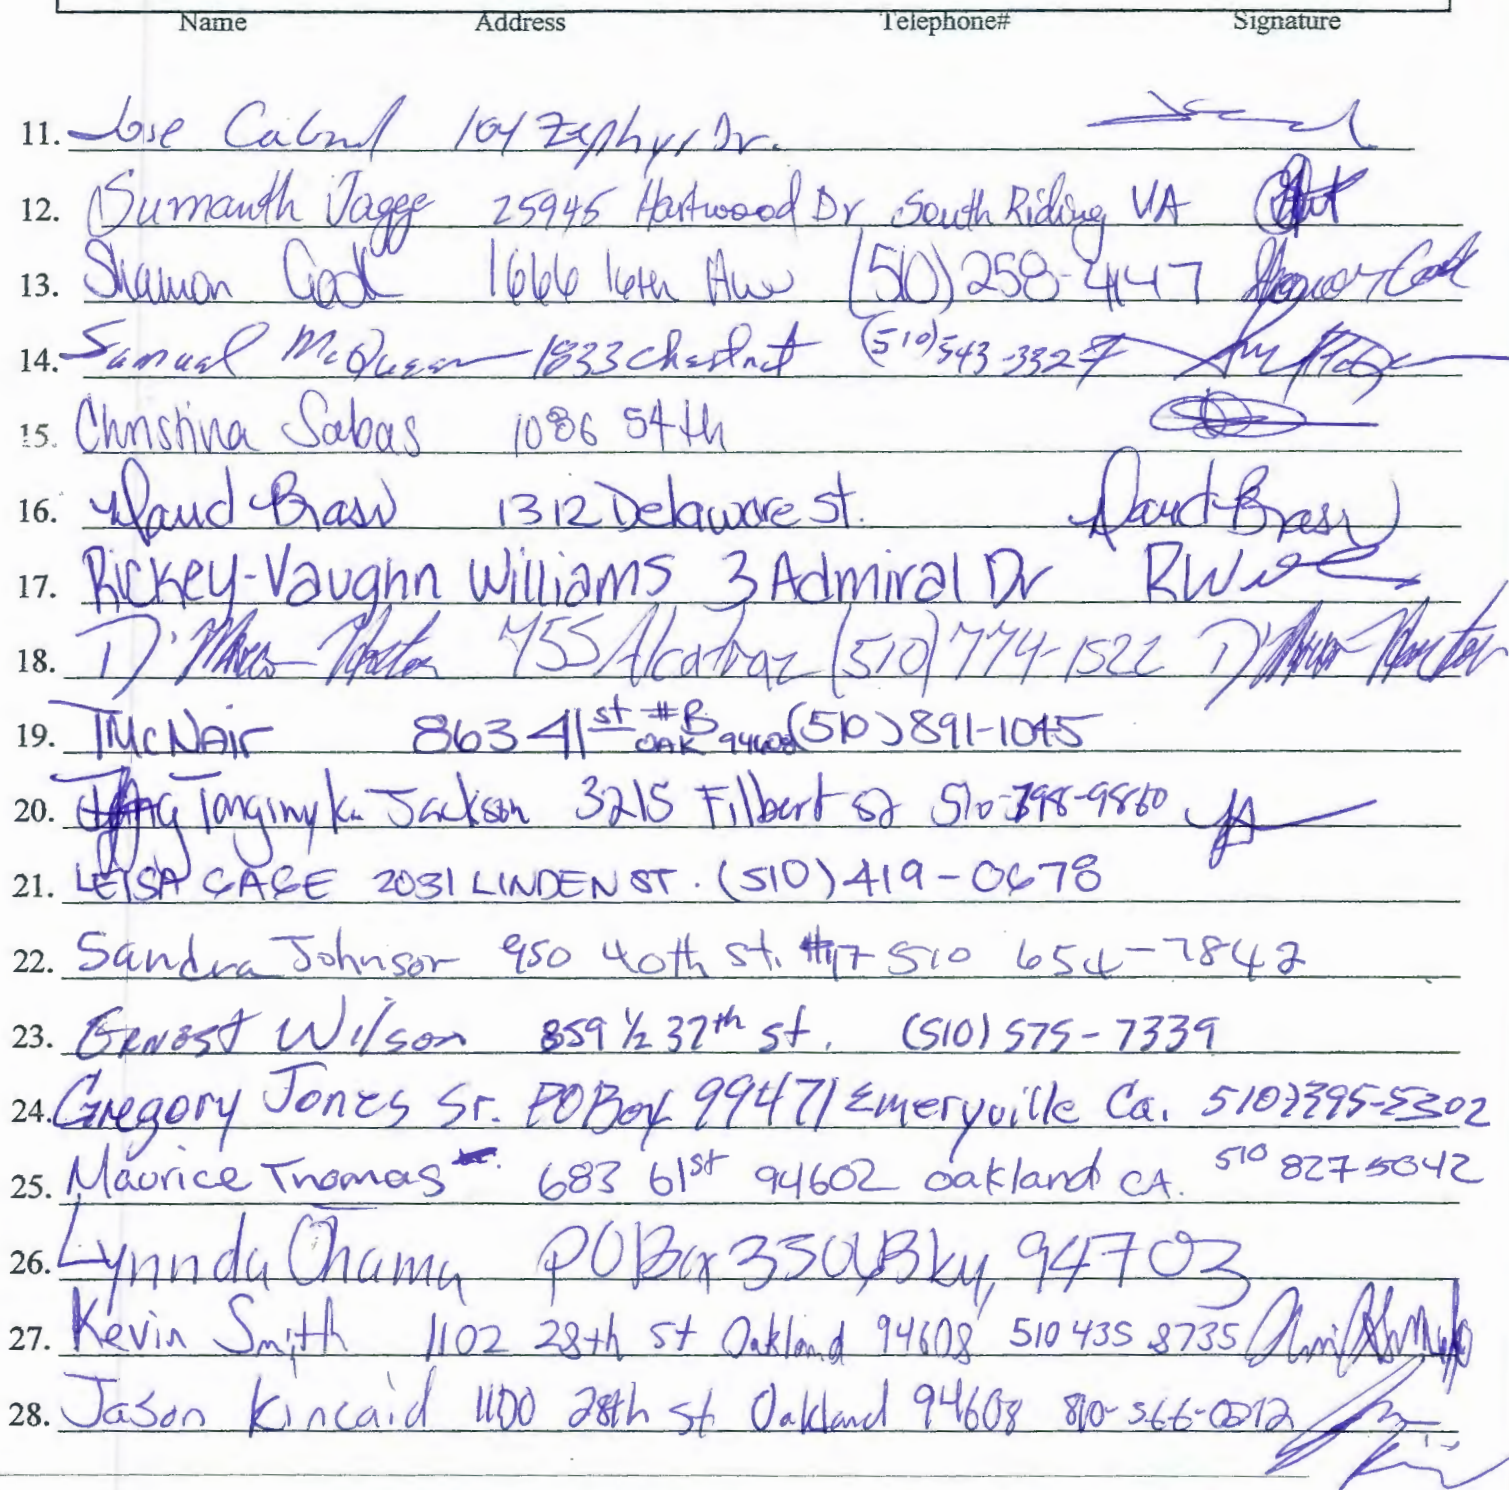 Name Address Telephone# Signature
11. Jose Cabral 104 Zephyr Dr.
12. Sumanth Jagge 25945 Hartwood Dr South Riding VA
13. Shannon Cook 1666 16th Ave (510) 258-4147 Shannon Cook
14. Samual McQueen 1833 Chestnut (510) 543-3327
15. Christina Sabas 1086 54th
16. David Brass 1312 Delaware St. David Brass
17. Rickey-Vaughn Williams 3 Admiral Dr
18. 755 Alcatraz (510) 774-1522
19. TMcNair 863 41st #B OAK 94608 (510) 891-1045
20. Jackson 3215 Filbert St
21. LEISA GAGE 2031 LINDEN ST. (510) 419-0678
22. Sandra Johnson 950 40th St. #17 510 654-7842
23. Ernest Wilson 859 1/2 37th St. (510) 575-7339
24. Gregory Jones Sr. PO Box 99471 Emeryville Ca.
25. Maurice Thomas 683 61st 94602 Oakland CA. 510 827 5042
26. Lynnda PO Box Bky, 94703
27. Kevin Smith 1102 28th St Oakland 94608 510 435 8735
28. Jason Kincaid 1100 28th St Oakland 94608